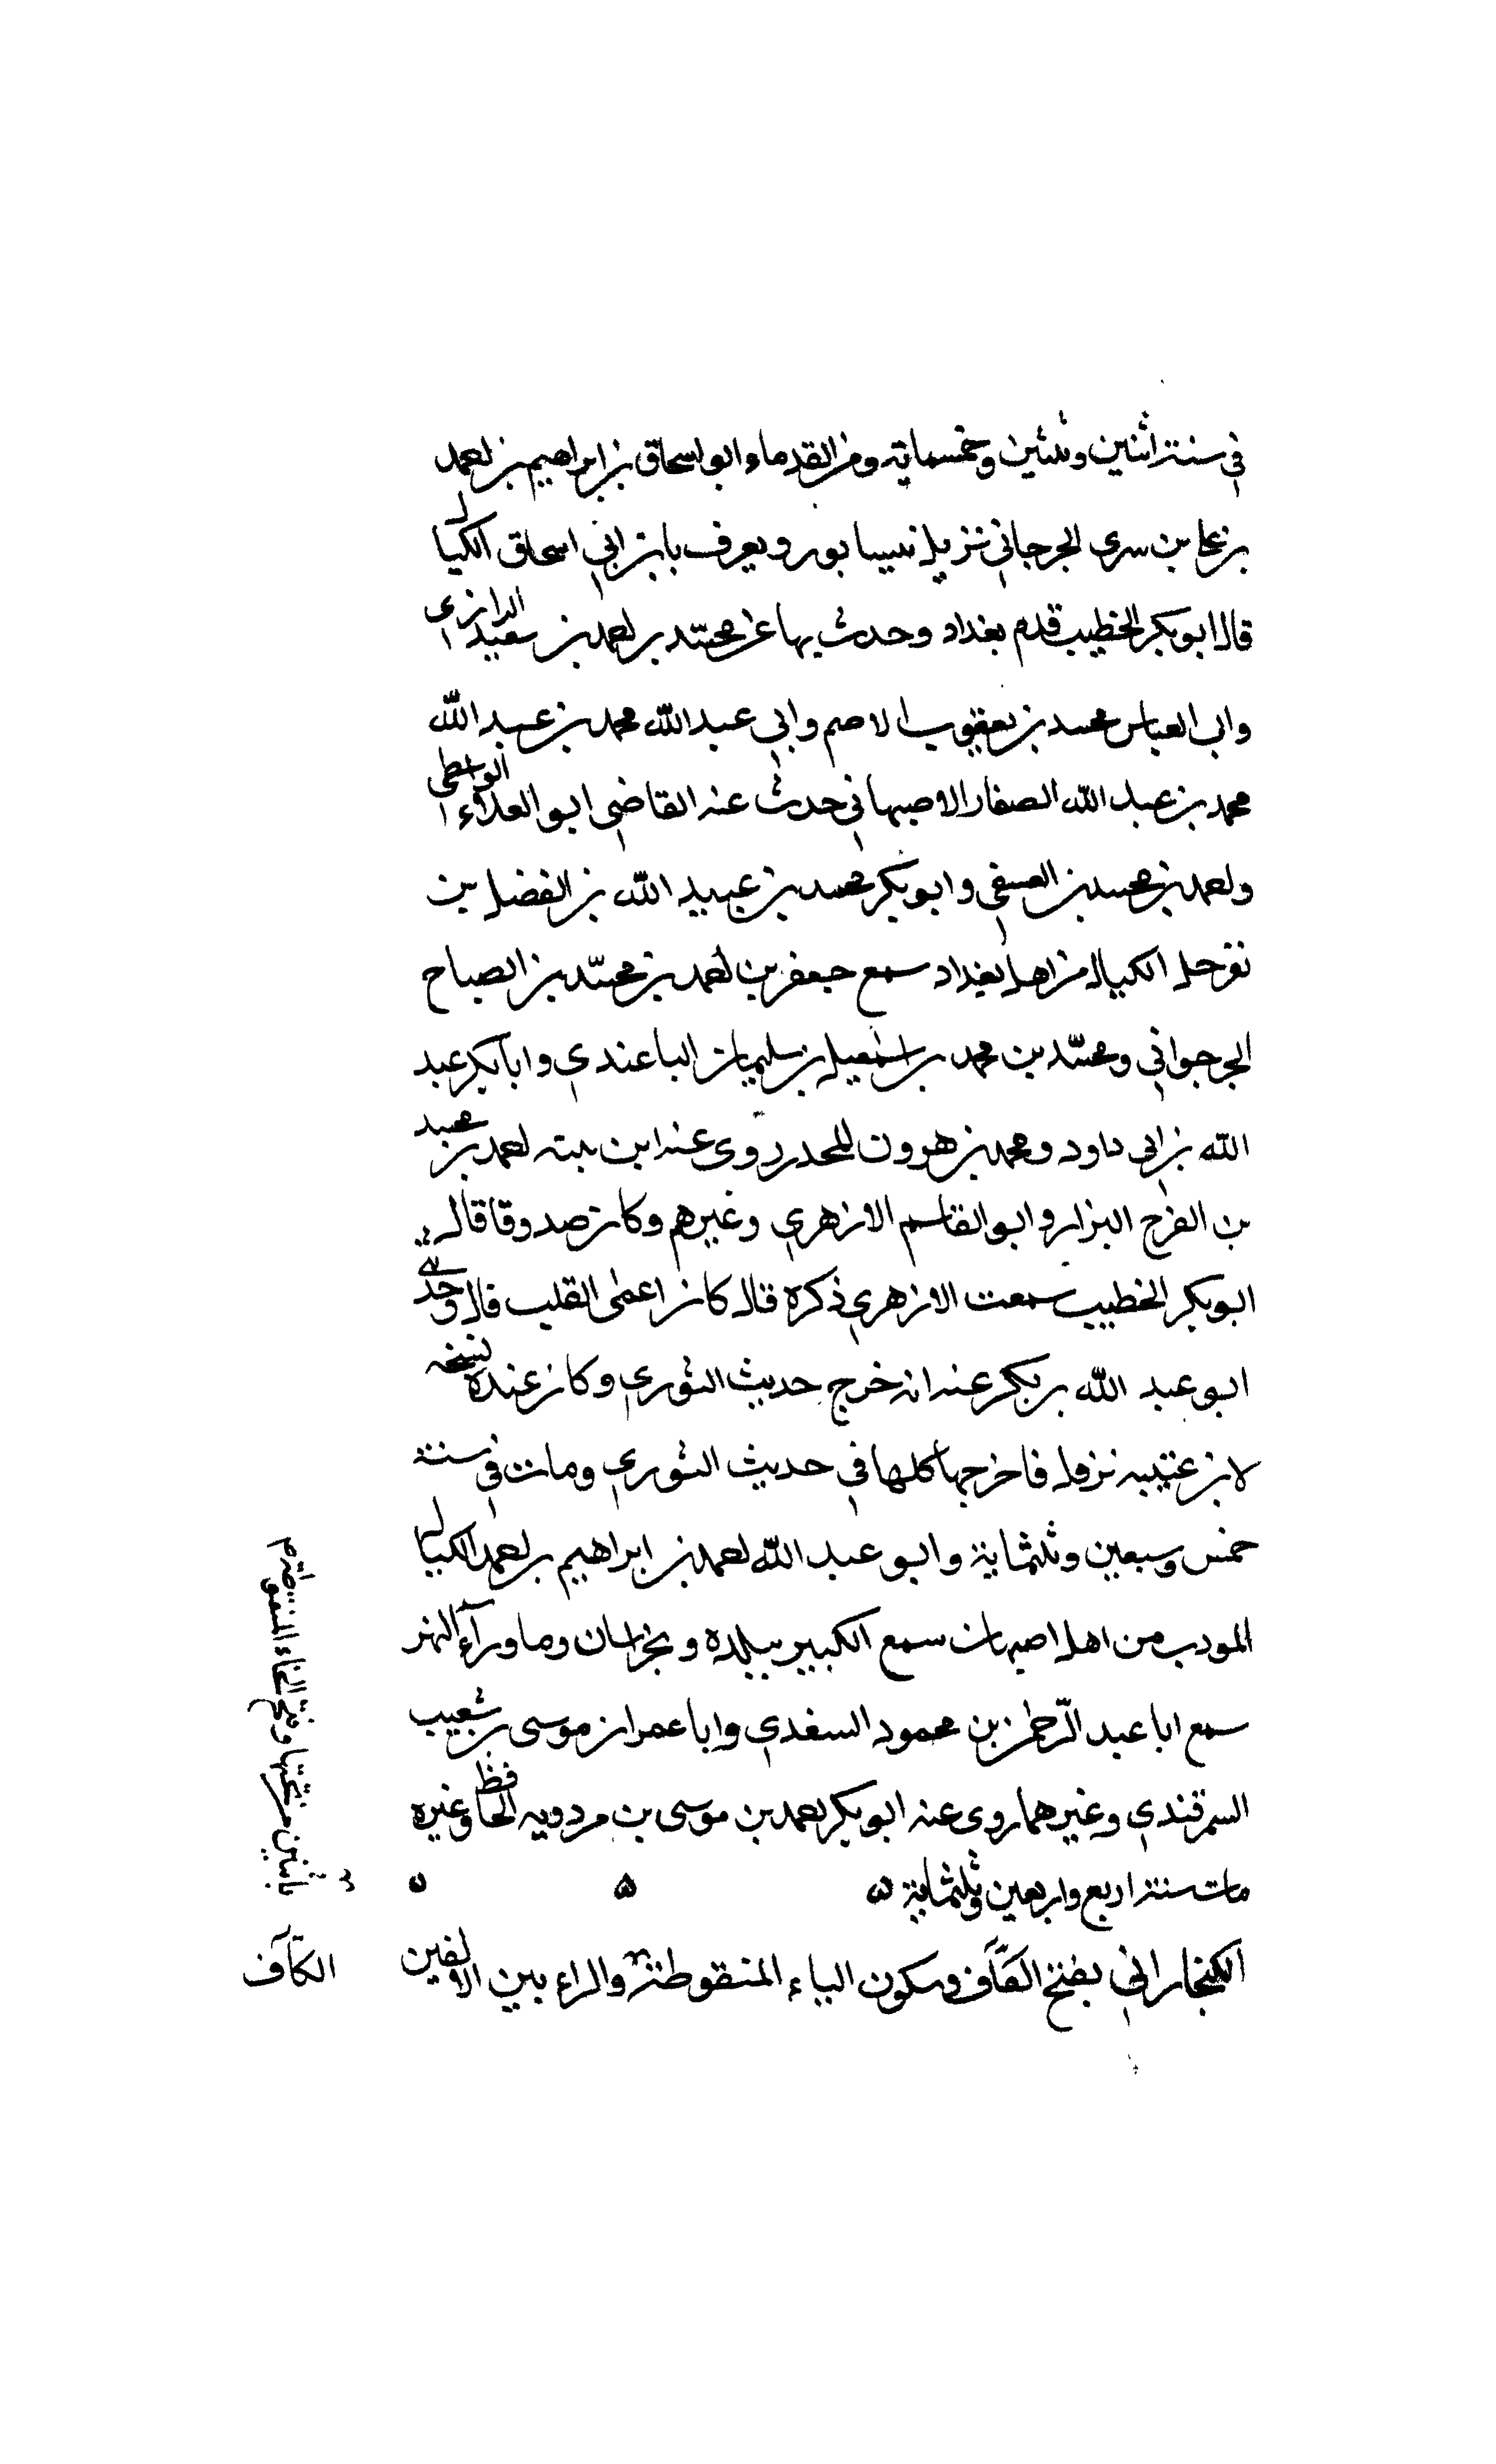 في سنة اثنين وثلثين وخمسماية ومن القدماء ابو اسحاق بن ابراهيم بن احمد
بن علي بن سري الجرجاني نزيل نيسابور ويعرف بابن ابي اسحاق الكيال
قال ابو بكر الخطيب قدم بغداد وحدث بها عن محمد بن احمد بن سعيد الرازي
وابي العباس محمد بن يعقوب الاصم وابي عبد الله محمد بن عبد الله
محمد بن عبد الله الصفار الاصبهاني حدث عنه القاضي ابو العلاء الواسطي
واحمد بن محمد بن العسفي وابو بكر محمد بن عبيد الله بن الفضل بن
نوحل الكيال من اهل بغداد سمع جعفر بن احمد بن محمد بن الصباح
الجرجراني ومحمد بن محمد بن اسمعيل بن سليمان الباغندي وابا بكر عبد
الله بن ابي داود ومحمد بن هرون المحدر روى عنه ابن بيته احمد بن عبيد
بن الفرج البزار وابو القاسم الازهري وغيرهم وكان صدوقا قال
ابو بكر الخطيب سمعت الازهري ذكره قال كان اعمى القلب قال وحدثني
ابو عبد الله بن بكر عنه انه خرج حديث الثوري وكان عنده نسخه
لابن عيينه نزولا فاخرجها كلها في حديث الثوري ومات في سنة
خمس وسبعين وثلثماية وابو عبد الله احمد بن ابراهيم بن احمد الكيال
المودب من اهل اصبهان سمع الكبير ببلده وبخراسان وما ورآء النهر
سمع ابا عبد الرحمن بن محمود السغدي وابا عمران موسى بن شعيب
السمرقندي وغيرهما روى عنه ابو بكر احمد بن موسى بن مردويه الحافظ وغيره
مات سنة اربع واربعين وثلثماية ه ه ه
الكيخاراني بفتح الكاف وسكون الياء المنقوطة والراء بين الالفين
باثنين من تحتها وفتح الخاء المنقوطة
الكاف